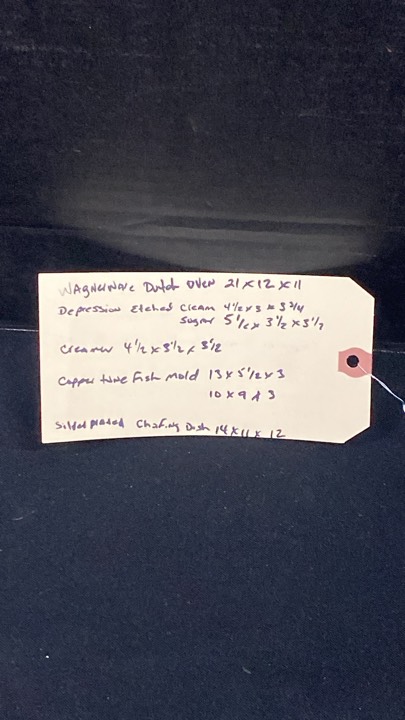 WAgnerWare Dutch OVEN 21 x 12 x 11
Depression Etched Cream 4 1/2 x 3 x 3 3/4
Sugar 5 1/2 x 3 1/2 x 3 1/2
Creamer 4 1/2 x 3 1/2 x 3 1/2
Copper tone Fish Mold 13 x 5 1/2 x 3
10 x 9 x 3
Silver plated Chafing Dish 14 x 11 x 12